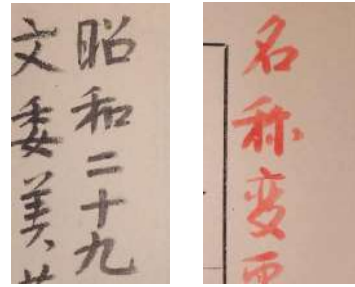 昭和二十九
文委美
名称変